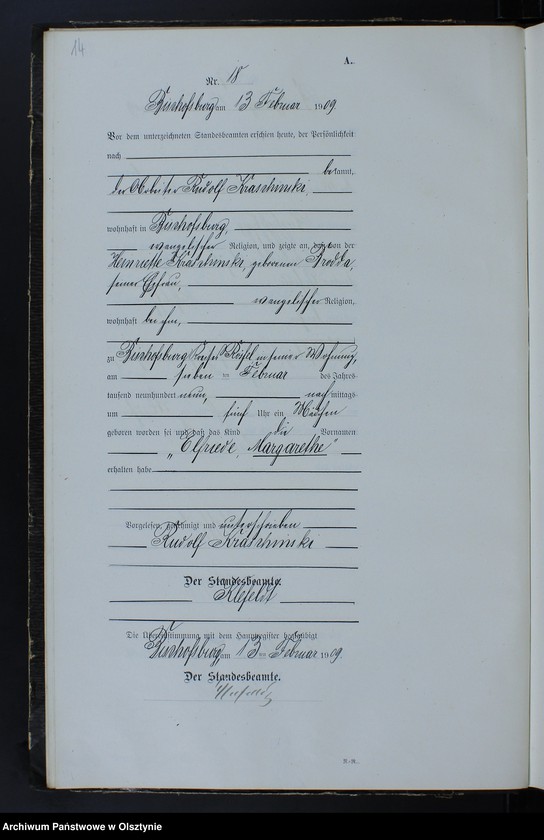 14
A.
Nr. 18
Bischofsburg am 13 Februar 1909
Vor dem unterzeichneten Standesbeamten erschien heute, der Persönlichkeit
nach
bekannt,
der Rudolf Kraschinski,
wohnhaft in Bischofsburg,
evangelischer Religion, und zeigte an, daß von der
Henriette Kraschinski, geborenen Brodda,
seiner Ehefrau,
evangelischer Religion,
wohnhaft bei ihm,
zu Bischofsburg Kreises Rössel in seiner Wohnung,
am sieben ten Februar des Jahres
tausend neunhundert neun, nachmittags
um fünf Uhr ein Mädchen
geboren worden sei und daß das Kind die Vornamen
„Elfriede, Margarethe"
erhalten habe
Vorgelesen, genehmigt und unterschrieben
Rudolf Kraschinski
Der Standesbeamte.
Klefeldt
Die Übereinstimmung mit dem Hauptregister beglaubigt
Bischofsburg, am 13 ten Februar 1909.
Der Standesbeamte.
Archiwum Państwowe w Olsztynie